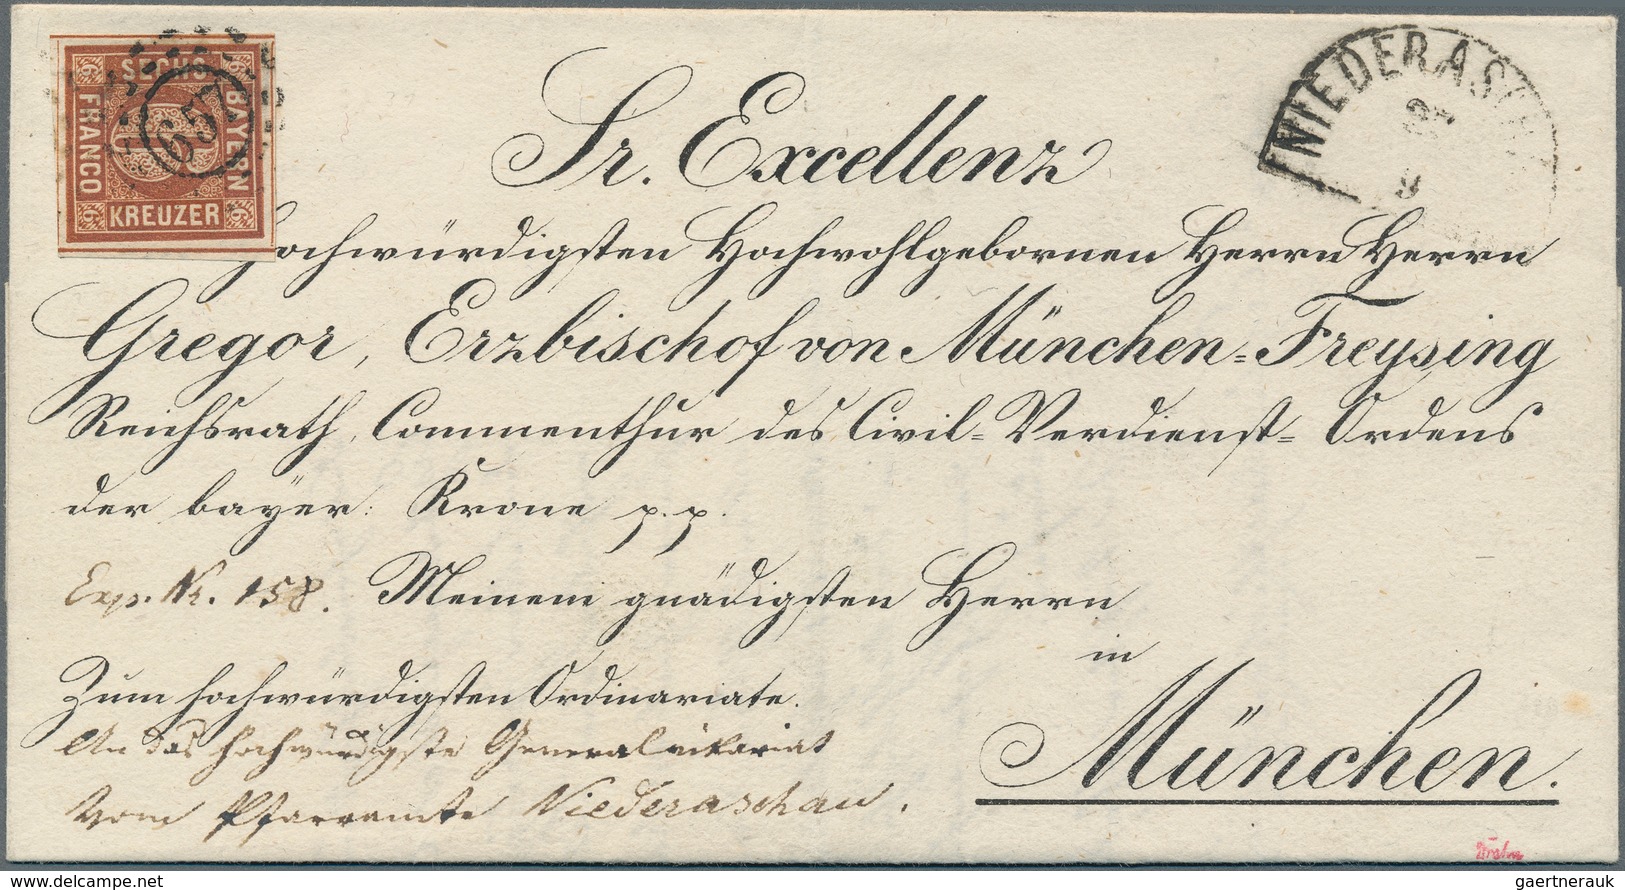 SECHS
BAYERN
FRANCO
KREUZER
6 6 6 6
657
NIEDERASCH
Sr. Excellenz
Hochwürdigsten Hochwohlgebornen Herrn Herrn
Gregor, Erzbischof von München-Freysing
Reichsrath, Commenthur des Civil-Verdienst-Ordens
der bayer: Krone p. p.
Exp. Nr. 158. Meinem gnädigsten Herrn
in
Zum hochwürdigsten Ordinariate.
München.
An das hochwürdigste Generalvikariat
Vom Pfarramte Niederaschau.
gaertnerauk @ delcampe.net